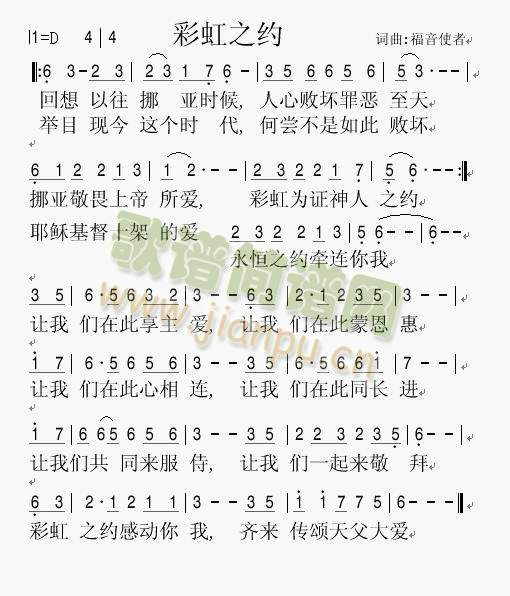 彩虹之约
I1=D 4|4 词曲:福音使者
‖: 6 3 - 2 3 | 2 3 1 7 6 - | 6 3 2 1 2 3 5 6 | 5 3 - - |
回想 以往 挪 亚时候, 人心败坏罪恶 至天
举目 现今 这个时 代, 何尝不是如此 败坏
6 1 2 2 2 1 3 | 1 2 · - - | 2 3 2 2 2 1 7 | 5 6 · - - :‖
挪亚敬畏上帝 所爱, 彩虹为证神人 之约
耶稣基督十架 的爱 2 3 2 3 1 2 3 | 5 6 - - | 6 - -
永恒之约牵连你我
3 5 | 6 · 5 6 3 2 | 3 - - 6 3 | 2 · 1 2 3 5 | 3 - -
让我 们在此享主 爱, 让我 们在此蒙恩 惠
1 7 | 6 · 5 6 5 6 | 3 - - 3 5 | 6 · 5 6 6 1 | 6 - -
让我 们在此心相 连, 让我 们在此同长 进
1 7 | 6 6 5 6 5 6 | 3 - - 3 5 | 2 2 3 2 3 5 | 6 - -
让我们共 同来服 侍, 让我 们一起来敬 拜
6 3 | 2 · 1 2 1 1 | 3 - - 3 5 | 1 · 1 7 7 5 | 6 - - - :‖
彩虹 之约感动你 我, 齐来 传颂天父大爱
歌谱简谱网
www.jianpu.cn